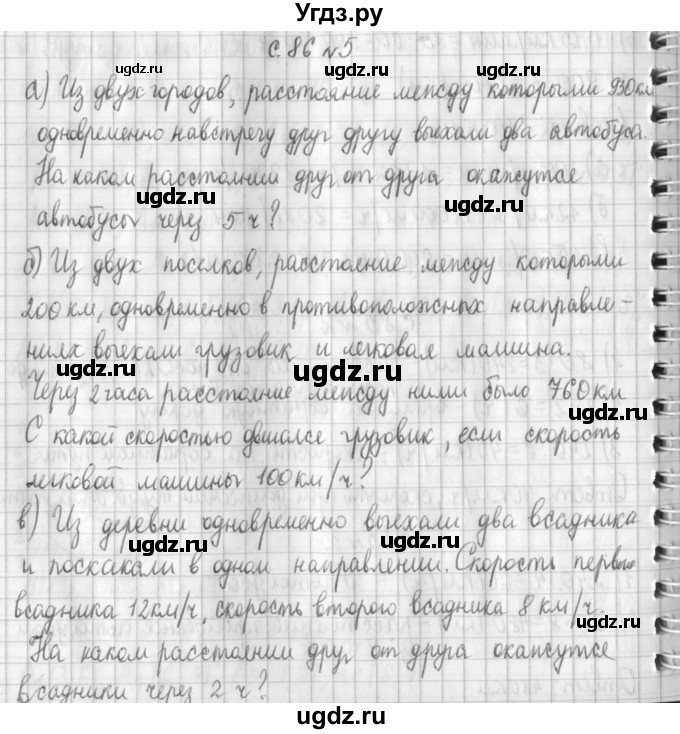 Угдз.ру
с. 86 №5
а) Из двух городов, расстояние между которыми 930 км
одновременно навстречу друг другу выехали два автобуса.
На каком расстоянии друг от друга окажутся
автобусы через 5 ч?
б) Из двух поселков, расстояние между которыми
200 км, одновременно в противоположных направле-
ниях выехали грузовик и легковая машина.
Через 2 часа расстояние между ними было 760 км
С какой скоростью двигался грузовик, если скорость
легковой машины 100 км/ч?
в) Из деревни одновременно выехали два всадника
и поскакали в одном направлении. Скорость первого
всадника 12 км/ч, скорость второго всадника 8 км/ч.
На каком расстоянии друг от друга окажутся
всадники через 2 ч?
ugdz.ru
ugdz.ru
ugdz.ru
ugdz.ru
ugdz.ru
ugdz.ru
ugdz.ru
ugdz.ru
ugdz.ru
ugdz.ru
ugdz.ru
ugdz.ru
ugdz.ru